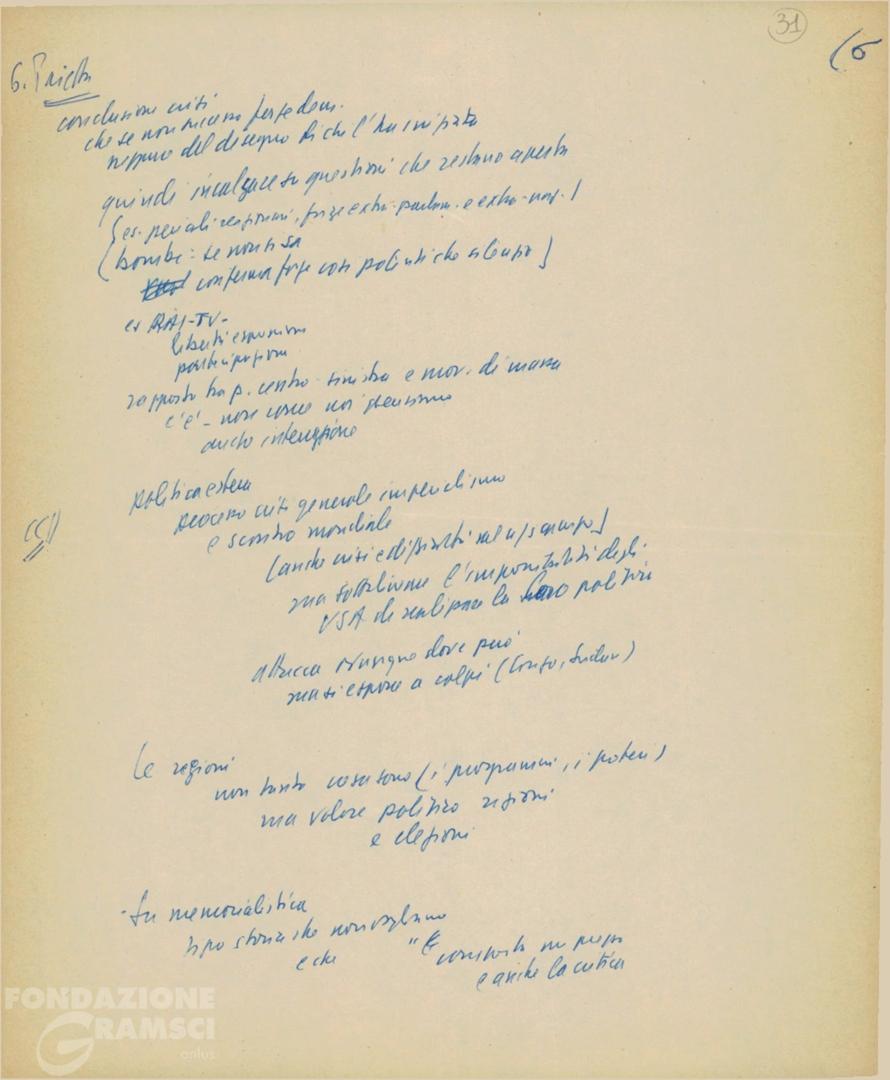 31
(6
6. Trieste
conclusione crisi
che se non successo forze dem.
neppure del disegno di chi l'ha iniziata
quindi incalzare su questioni che restano aperte
forze extra-parlam. e extra-naz.)
(bombe: se non si sa
conferma forze così potenti che silenzio]
es RAI-TV-
libertà espressione
participazione
rapporto tra p. centro-sinistra e mov. di massa
c'è - non come noi pensiamo
anche interruzione
politica estera
processo crisi generale imperialismo
e scontro mondiale
(anche crisi e difficoltà nel n/s campo)
ma sottolineare l'impossibilità degli
USA di realizzare la loro politica
attacca ovunque dove può
ma si espone a colpi (Congo, Sudan)
Le regioni
non tanto cosa sono (i programmi, i poteri)
ma valore politico regioni
e elezioni
- Su memorialistica
tipo storia che non vogliamo
e che "È
composta in prosa
e anche la critica
FONDAZIONE
GRAMSCI
onlus